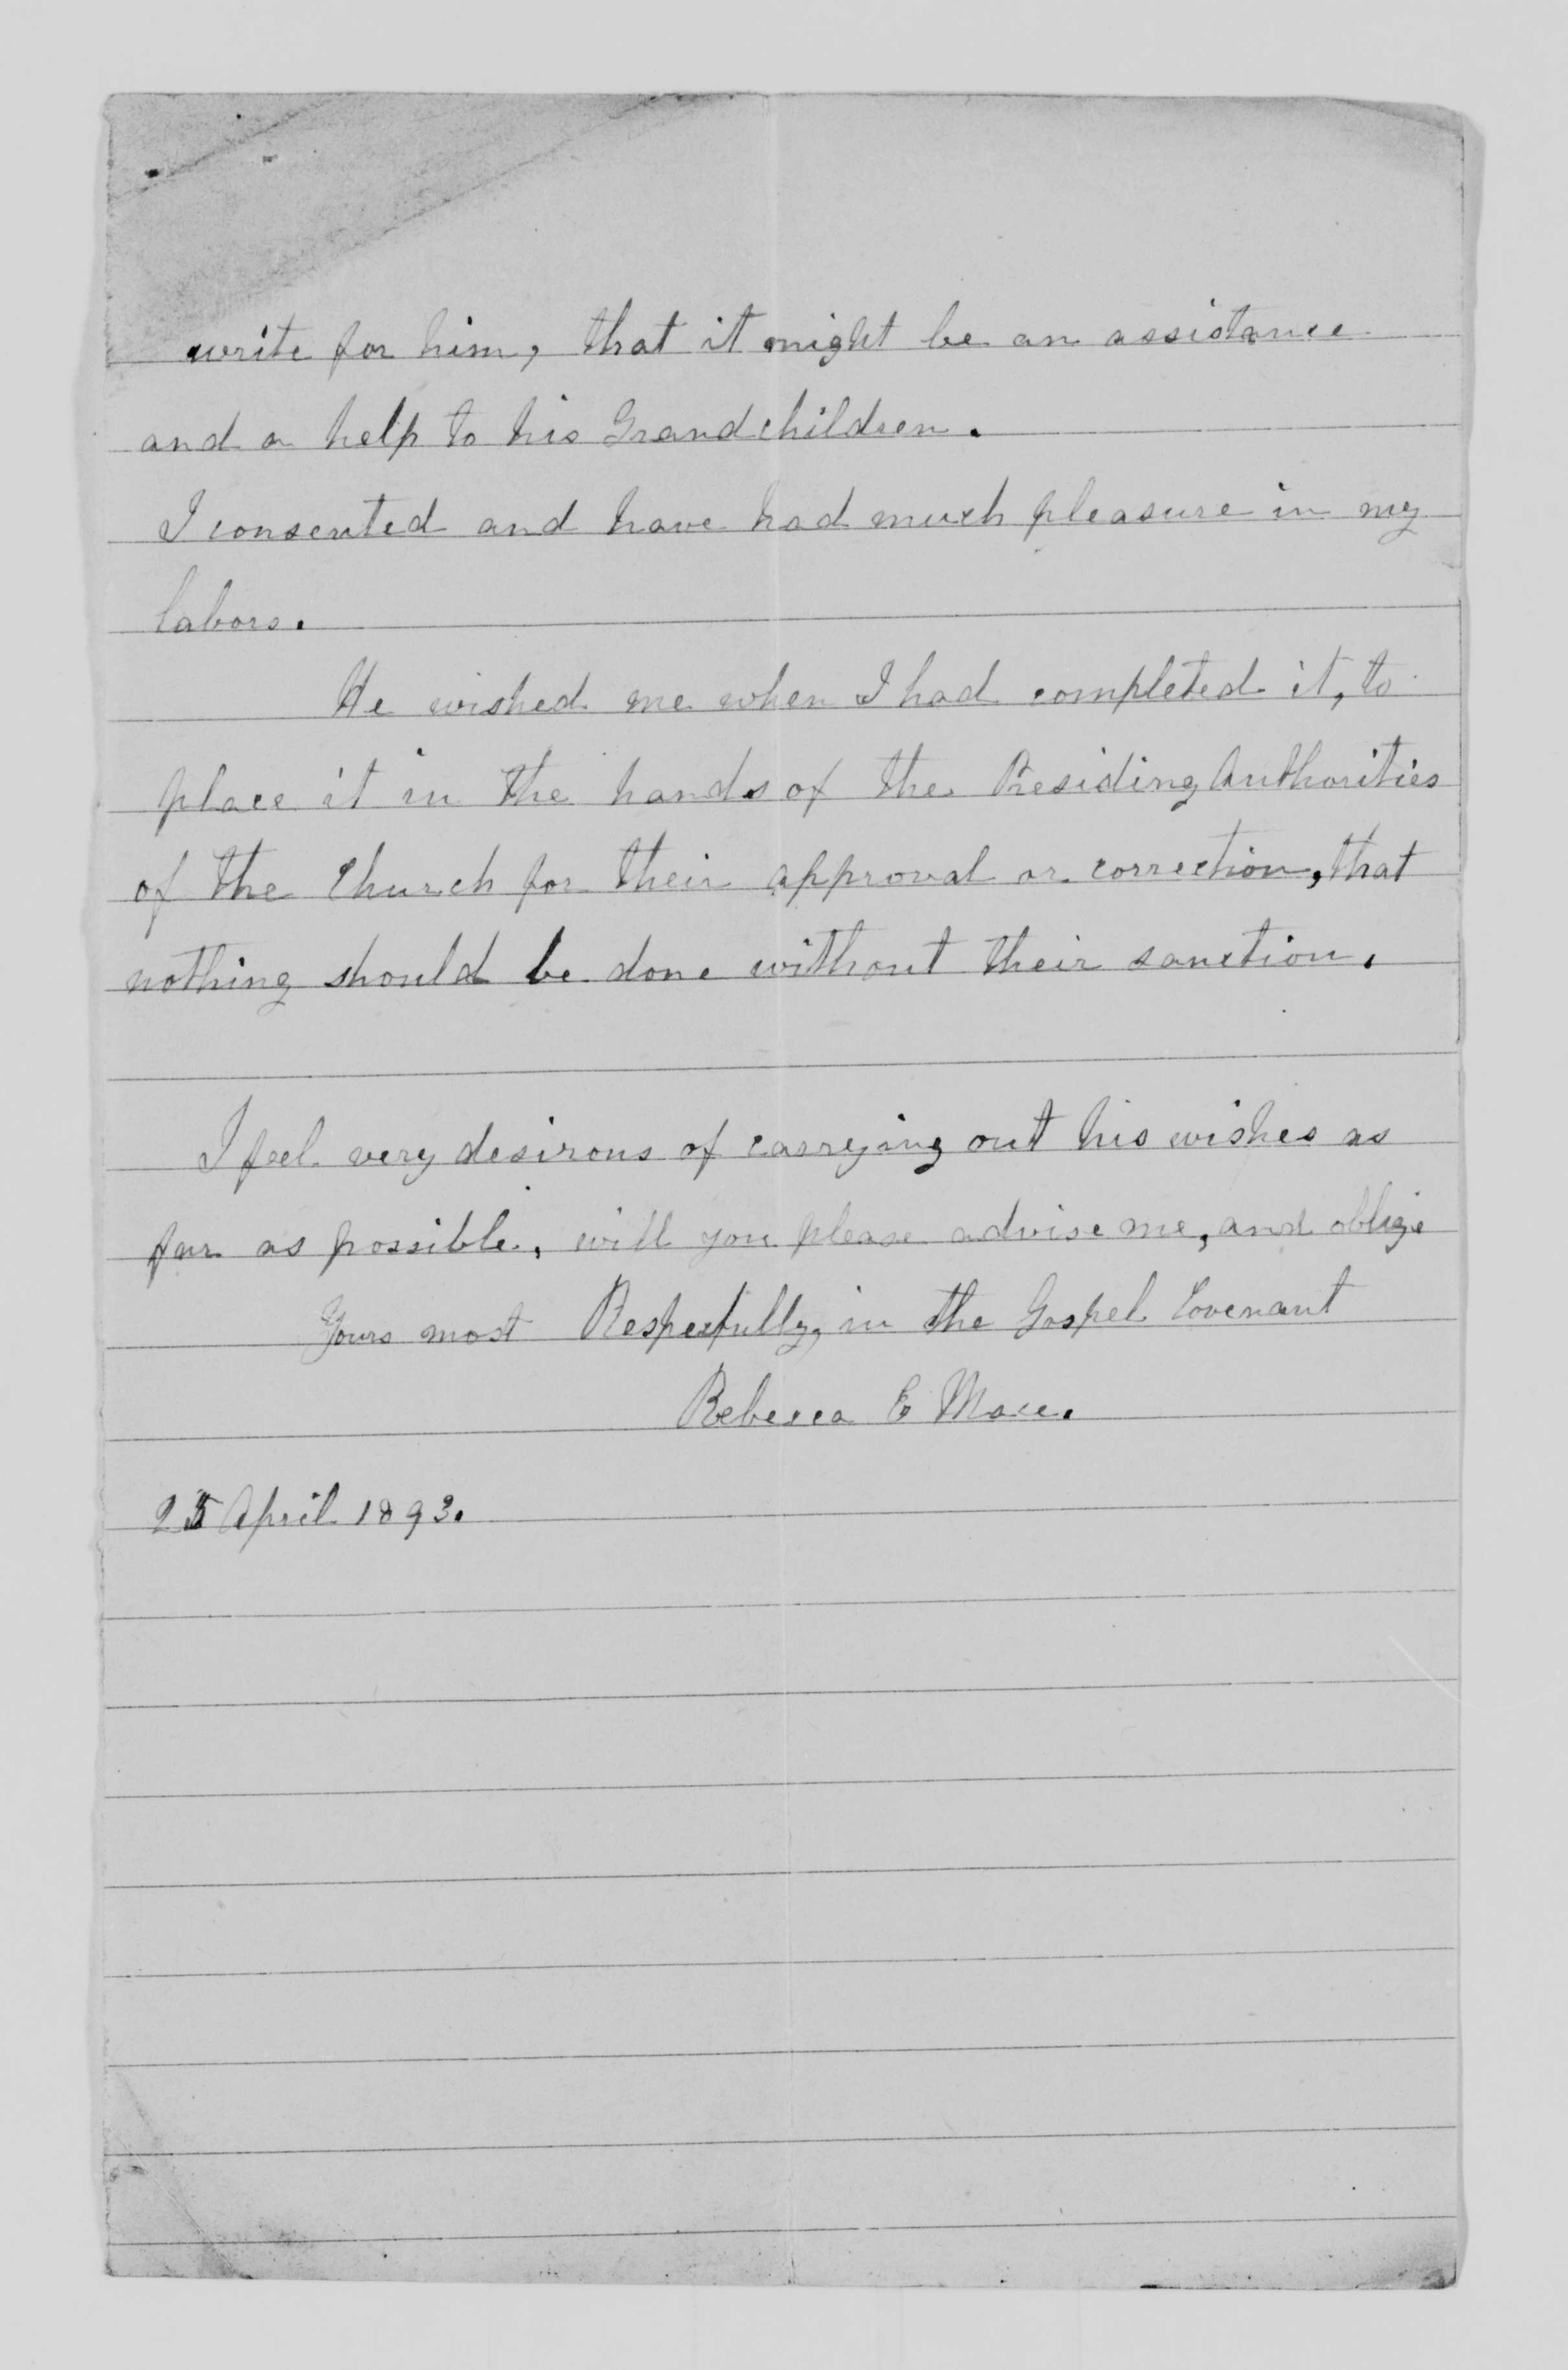 write for him, that it might be an assistance
and a help to his Grandchildren.
I consented and have had much pleasure in my
labors.
He wished me when I had completed it, to
place it in the hands of the Presiding Authorities
of the Church for their approval or correction, that
nothing should be done without their sanction.
I feel very desirous of carrying out his wishes as
far as possible, will you please advise me, and oblige
Yours most Respectfully, in the Gospel Covenant
Rebecca E Mace.
25 April 1893.